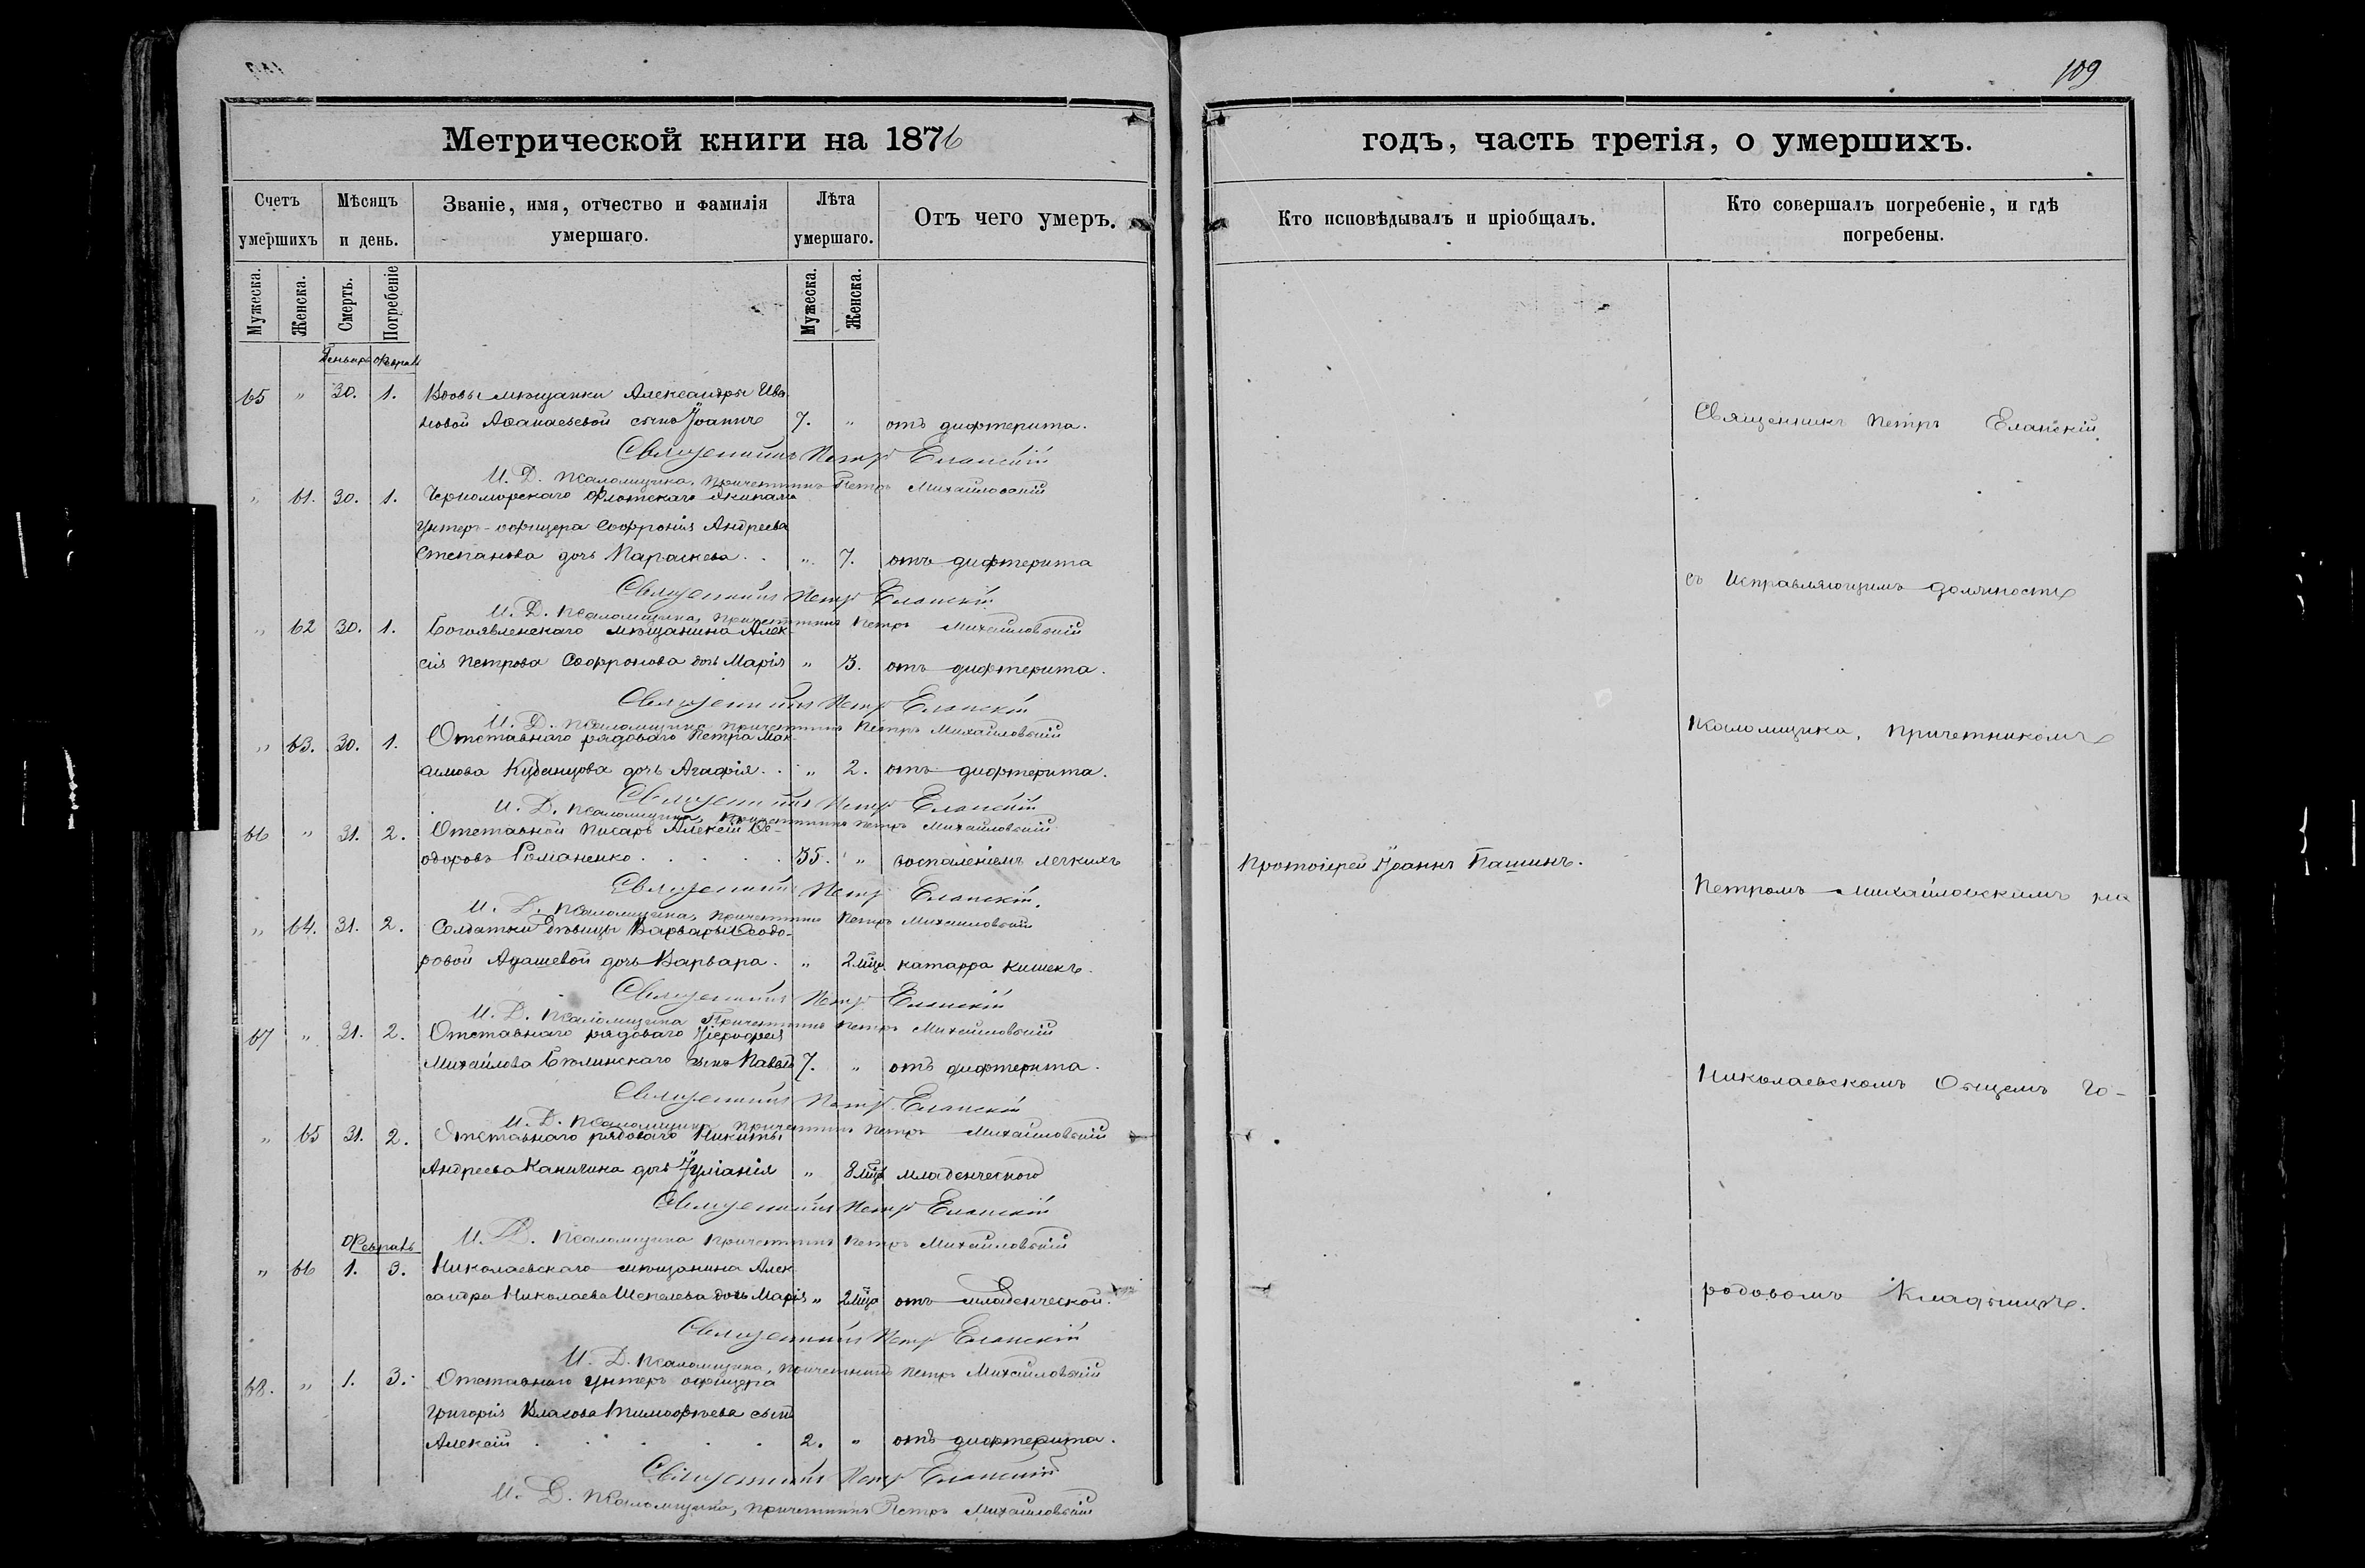 109
Метрической книги на 1876
годъ, часть третія, о умершихъ.
Счетъ умершихъ
Мѣсяцъ и день.
Званіе, имя, отчество и фамилія умершаго.
Лѣта умершаго.
Отъ чего умеръ.
Кто исповѣдывалъ и пріобщалъ.
Кто совершалъ погребеніе, и гдѣ погребены.
Мужеска.
Женска.
Смерть.
Погребеніе
Мужеска.
Женска.
Генварь Февраль
65 " 30. 1. Вдовы мѣщанки Александры Ива-
новой Аѳанасьевой сынъ Іоаннъ 7. " отъ дифтерита.
Священникъ Петръ Еланскій
И. Д. Псаломщика, Причетникъ Петръ Михайловскій
" 61. 30. 1. Черноморскаго Флотскаго Экипажа
Унтеръ-офицера Софронія Андреева
Степанова дочь Параскева . . " 7. отъ дифтерита
Священникъ Петръ Еланскій
И. Д. Псаломщика, Причетникъ Петръ Михайловскій
" 62 30. 1. Богоявленскаго мѣщанина Алек-
сія Петрова Софронова дочь Марія " 3. отъ дифтерита.
Священникъ Петръ Еланскій
И. Д. Псаломщика Причетникъ Петръ Михайловскій
" 63. 30. 1. Отставнаго рядоваго Петра Мак-
симова Кубанцова дочь Агафія. . " 2. отъ дифтерита.
Священникъ Петръ Еланскій
И. Д. Псаломщика, Причетникъ Петръ Михайловскій
66 " 31. 2. Отставной Писарь Алексій Ѳе-
одоровъ Романенко . . . . . 55. " воспаленіемъ легкихъ
Священникъ Петръ Еланскій.
И. Д. Псаломщика, Причетникъ Петръ Михайловскій
" 64. 31. 2. Солдатки дѣвицы Варвары Ѳеодо-
ровой Адашевой дочь Варвара. " 2 мца катарра кишекъ.
Священникъ Петръ Еланскій
И. Д. Псаломщика Причетникъ Петръ Михайловскій
67 " 31. 2. Отставнаго рядоваго
Михайлова Бѣлинскаго сынъ Павелъ 7. " отъ дифтерита.
Священникъ Петръ Еланскій
И. Д. Псаломщика Причетникъ Петръ Михайловскій
" 65 31. 2. Отставнаго рядоваго Никиты
Андреева Каничина дочь Іуліанія " 8 мцъ младенческого
Священникъ Петръ Еланскій
И. Д. Псаломщика Причетникъ Петръ Михайловскій
Февраль
" 66 1. 3. Николаевскаго мѣщанина Алек-
сандра Николаева Шепелева дочь Марія " 2 мца отъ младенческой.
Священникъ Петръ Еланскій
И. Д. Псаломщика, Причетникъ Петръ Михайловскій
68. " 1. 3. Отставнаго Унтеръ офицера
Григорія Власова Тимоѳѣева сынъ
Алексій . . . . . 2. " отъ дифтерита.
Священникъ Петръ Еланскій
И. Д. Псаломщика, Причетникъ Петръ Михайловскій
Протоіерей Іоаннъ Пашинъ.
Священникъ Петръ Еланскій
съ Исправляющимъ должность
Псаломщика, Причетникомъ
Петромъ Михайловскимъ на
Николаевскомъ Общемъ Го-
родовомъ Кладбищѣ.